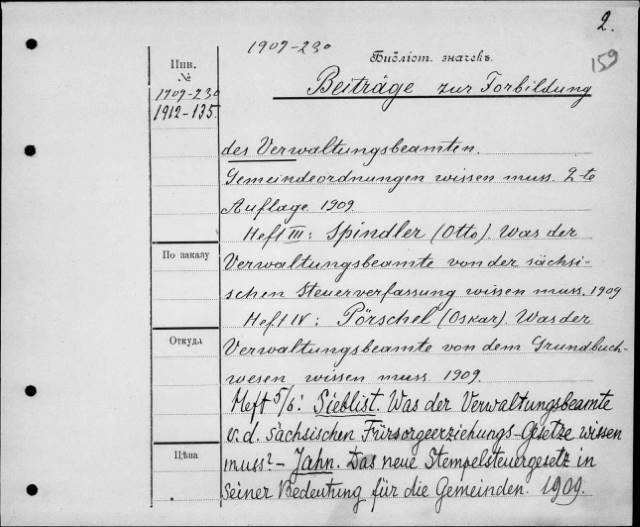 2.
159
1909-230
Библіот. значекъ.
Инв.
№
1909-230
1912-135.
Beiträge zur Forbildung
des Verwaltungsbeamten.
Gemeindeordnungen wissen muss. 2-te
Auflage. 1909.
Heft III: Spindler (Otto). Was der
По заказу
Verwaltungsbeamte von der sächsi-
schen Steuerverfassung wissen muss. 1909
Heft IV: Pörschel (Oskar). Was der
Откуда
Verwaltungsbeamte von dem Grundbuch-
wesen wissen muss 1909.
Heft 5/6: Sieblist. Was der Verwaltungsbeamte
v. d. Sächsischen Fürsorgeerziehungs-Gesetze wissen
Цѣна
muss? - Jahn. Das neue Stempelsteuergesetz in
seiner Bedeutung für die Gemeinden. 1909.